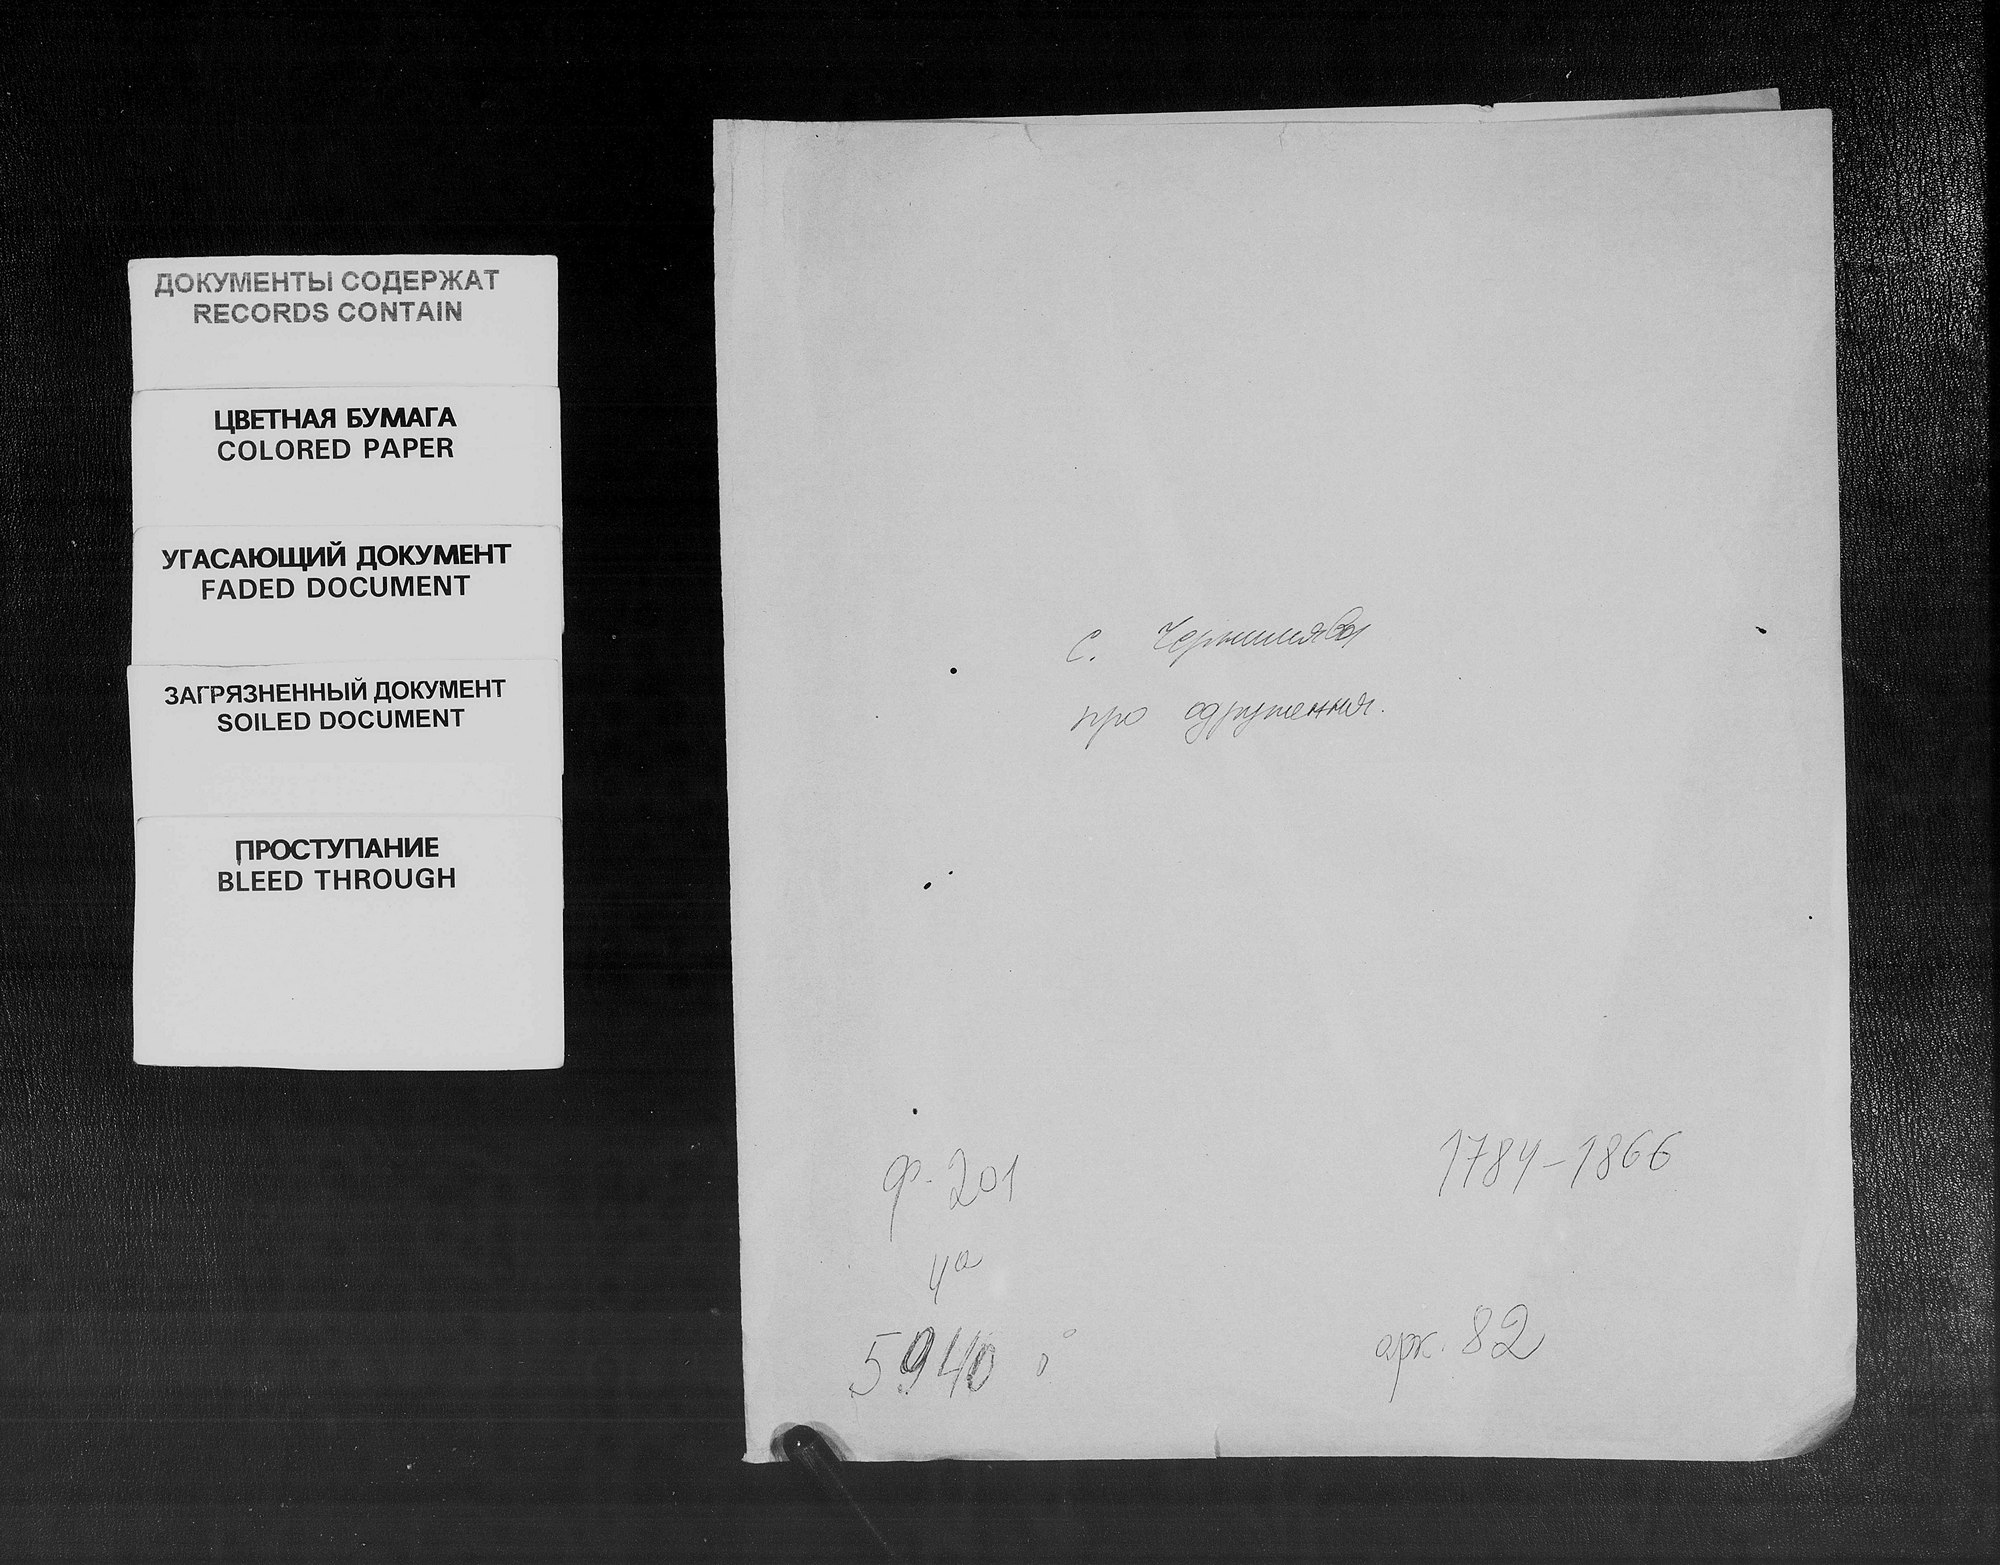 ДОКУМЕНТЫ СОДЕРЖАТ
RECORDS CONTAIN
ЦВЕТНАЯ БУМАГА
COLORED PAPER
УГАСАЮЩИЙ ДОКУМЕНТ
FADED DOCUMENT
ЗАГРЯЗНЕННЫЙ ДОКУМЕНТ
SOILED DOCUMENT
ПРОСТУПАНИЕ
BLEED THROUGH
с.
про одруження.
ф. 201
4а
5940
1784-1866
арк. 82